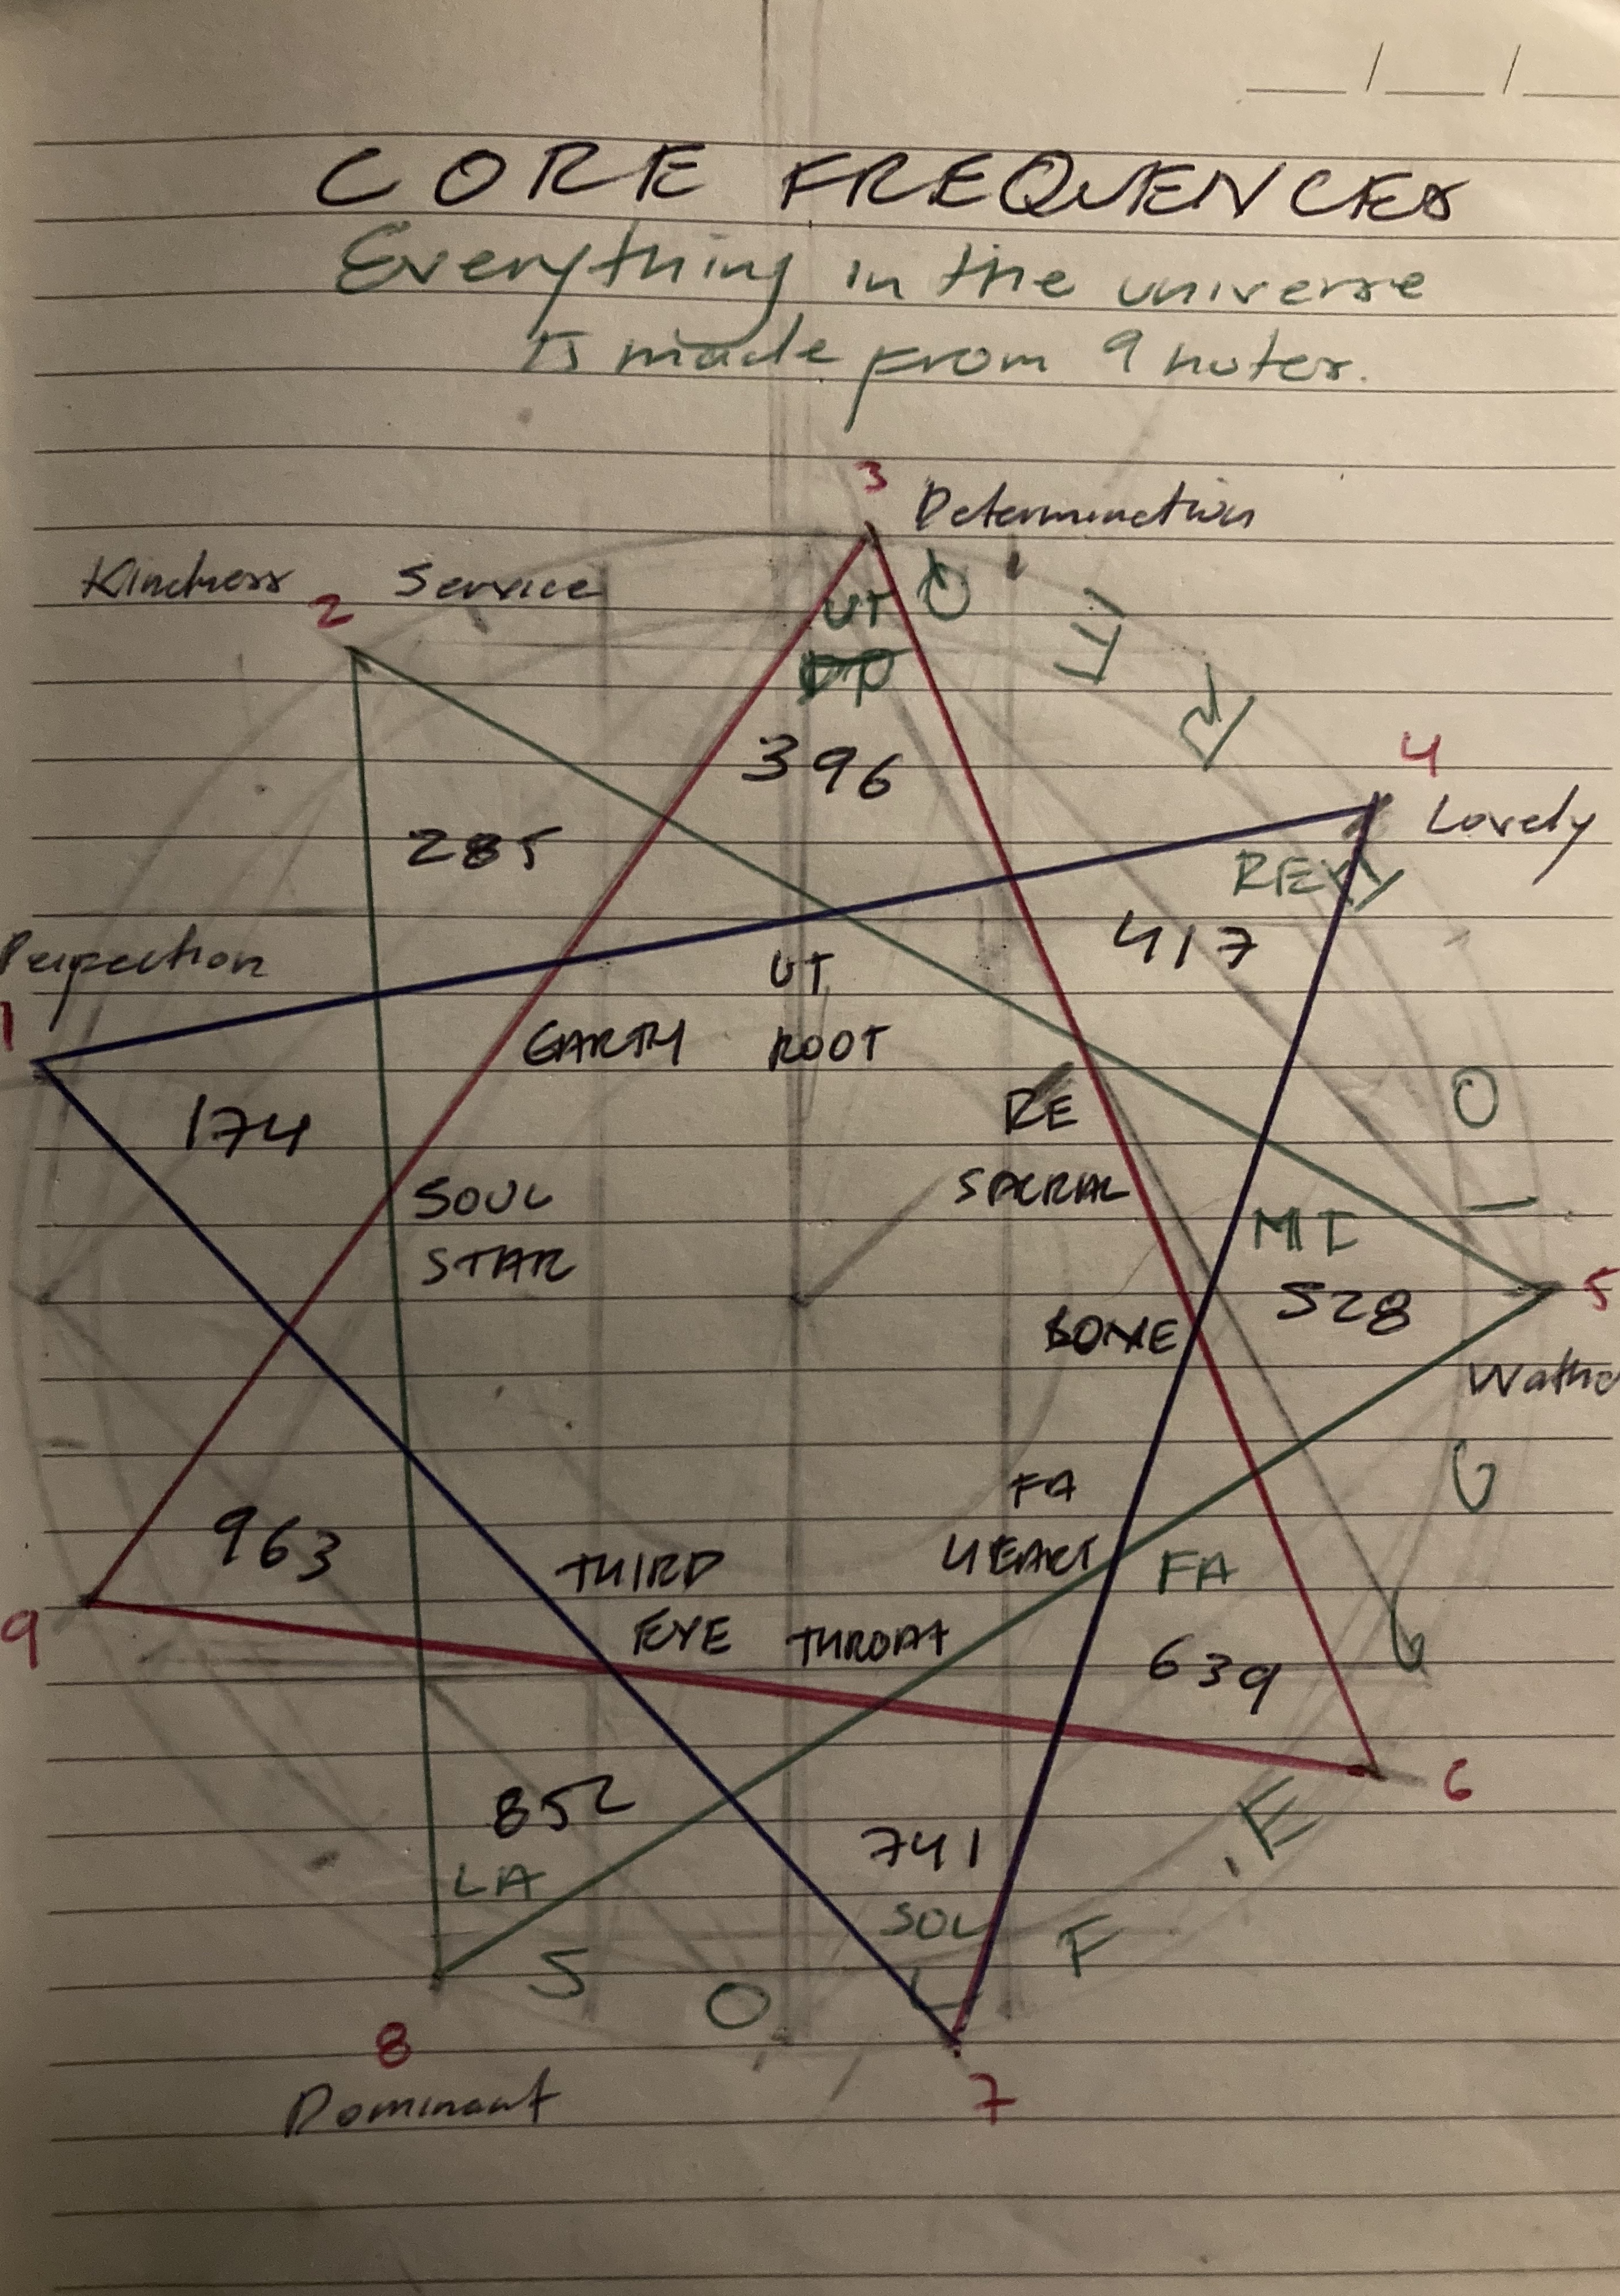 CORE FREQUENCES
Everything in the universe
Is made from 9 notes.
3
Determination
Kindness Service
2
UT
396
4
Lovely
RE
285
417
Perfection
1
UT
EARTH ROOT
174
RE
SACRAL
SOUL
STAR
MI
528
5
963
FA
HEART
FA
THIRD
EYE THROAT
639
9
6
852
741
LA
SOL
S O L F E
G
G
I
O
8
7
Dominant